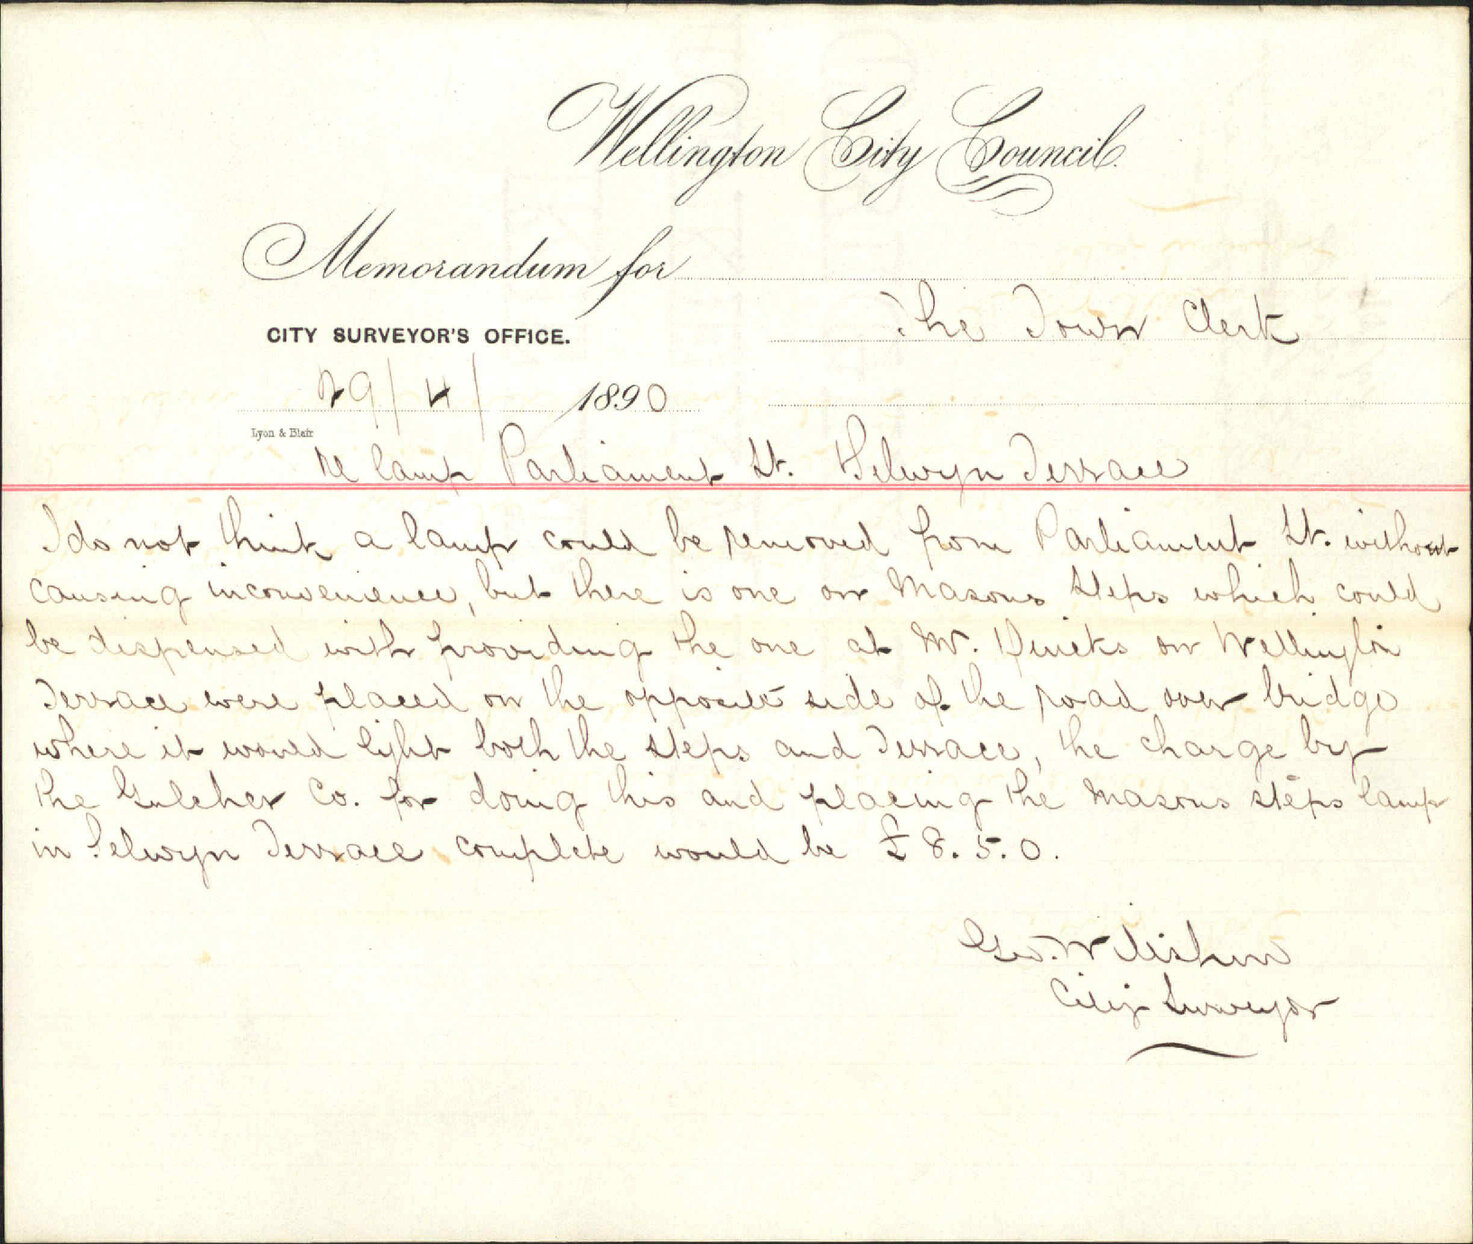 Wellington City Council.
Memorandum for
The Town Clerk
CITY SURVEYOR'S OFFICE.
29/4/ 1890
Lyon & Blair
re lamp Parliament St. Selwyn Terrace
I do not think a lamp could be removed from Parliament St. without
causing inconvenience, but there is one on Masons Steps which could
be dispensed with providing the one at Mr. on Wellington
Terrace were placed on the opposite side of the road over bridge
where it would light both the steps and Terrace, the charge by
the Gulcher Co. for doing this and placing the Masons steps lamp
in Selwyn Terrace complete would be £8.5.0.
Geo. W
City Surveyor